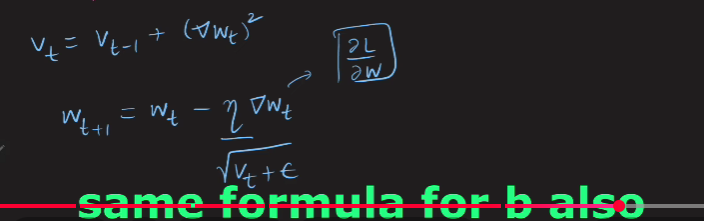 v_t = v_{t-1} + (∇w_t)^2
∂L/∂w
w_{t+1} = w_t - η ∇w_t / √(v_t + ϵ)
same formula for b also